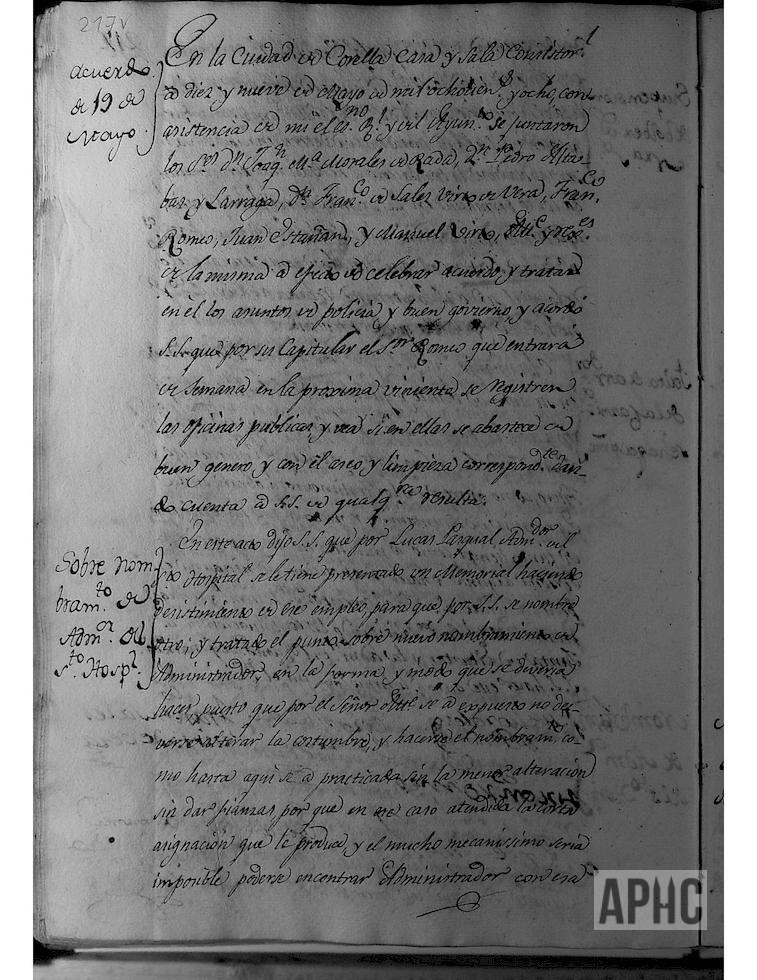 217v
acuerdo
de 19 de
Mayo.
En la Ciudad de Corella Casa y Sala Consistorl
a diez y nueve de Mayo de mil ochocien.s y ocho, con
asistencia de mi el es.no Rl y del Ayun.to se juntaron
los S.res dn Joaqn Ma Morales de Rada, Dn Pedro
y Larraga, dn Franco de Sales Virto de Vera, Franco
Romeo, Juan Estañan, y Manuel Virto, Alc.e y rexes
de la misma a efecto de celebrar acuerdo y tratar
en el los asuntos de policia y buen govierno y acordó
S.S. que por su Capitular el Sor Romeo que entrará
de Semana en la proxima viniente se registren
las oficinas publicas y vea si en ellas se abastece de
buen genero y con el aseo y limpieza correspondte dan-
do cuenta a S.S. de qualqra resulta.
Sobre nom-
bram.to de
Admor del
s.to Hospl.
En este acto dijo S.S. que por Lucas Pasqual Admdor del
sto Hospital se le tiene presentado un Memorial haciendo
desistimiento de ese empleo para que por S.S. se nombre
otro; y tratado el punto sobre nuevo nombramiento de
Administrador, en la forma y modo que se deveria
hacer, puesto que por el Señor Alce se a expuesto no de-
verse alterar la costumbre, y hacerse el nombramto co-
mo hasta aqui se a practicado sin la menor alteración
sin dar fianzas por que en ese caso atendida la corta
asignación que le produce, y el mucho mecanissimo seria
imposible poderse encontrar Administrador con esa
APHC